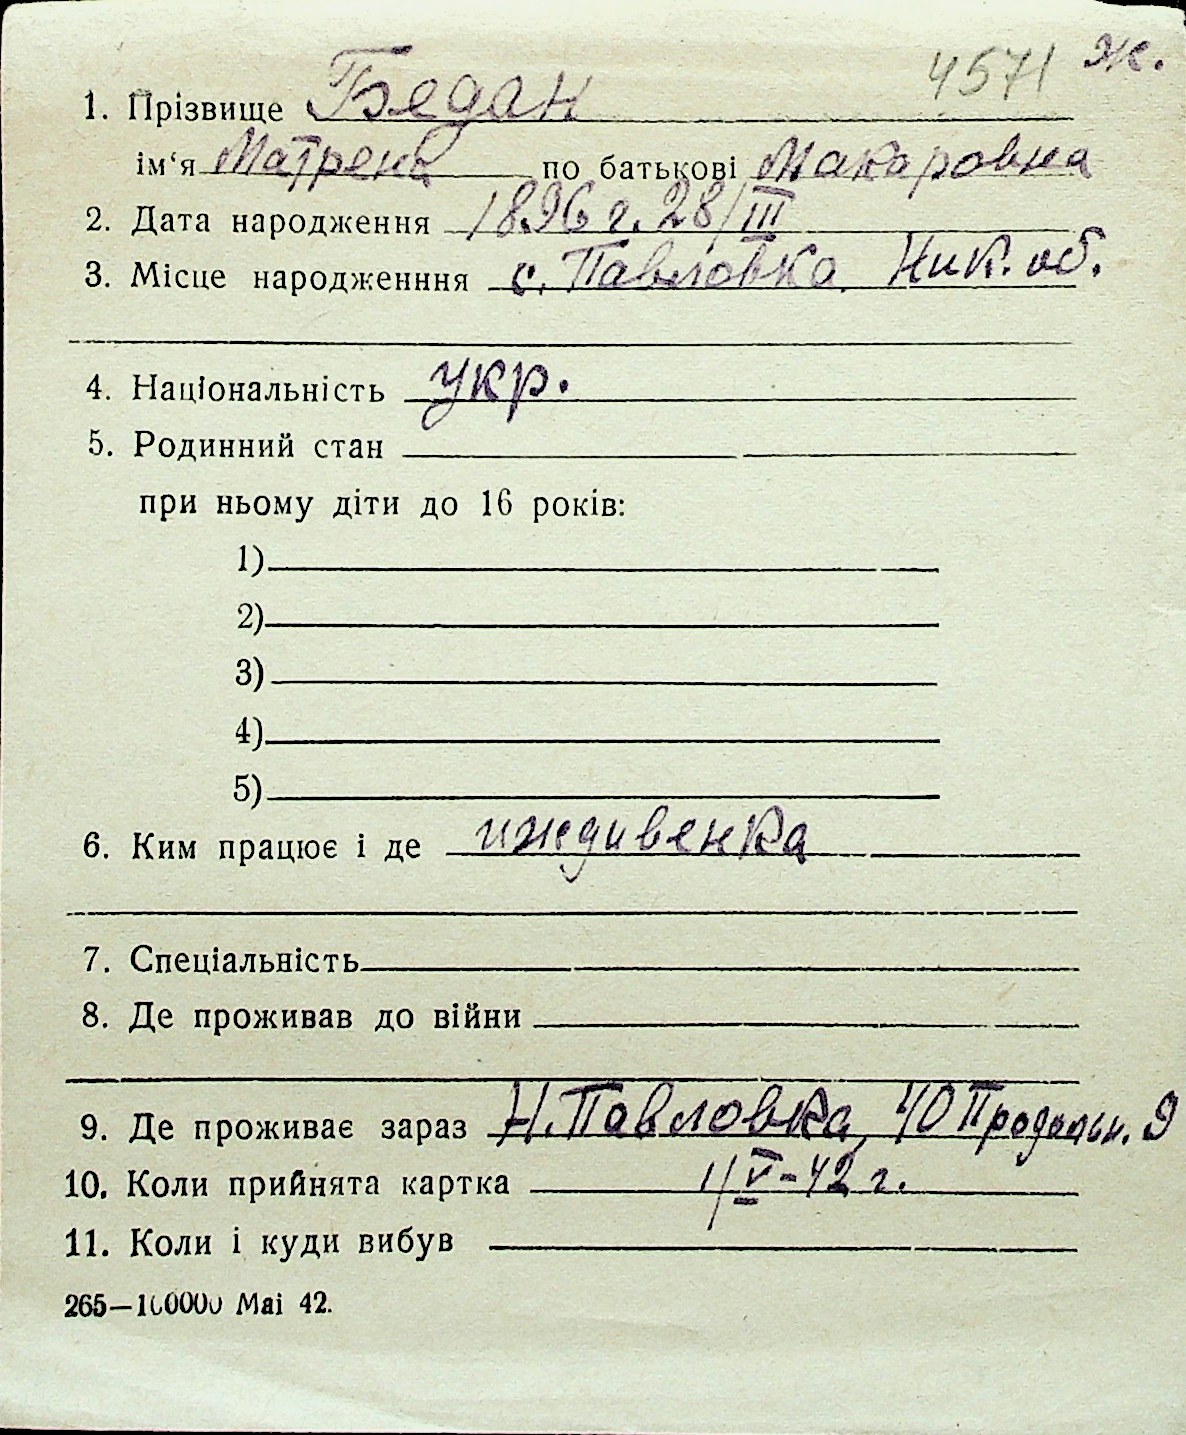 4571 ж.
1. Прізвище Бедан
ім‘я Матрена по батькові Макаровна
2. Дата народження 1896 г. 28/III
3. Місце народженння с. Павловка Ник. об.
4. Національність укр.
5. Родинний стан
при ньому діти до 16 років:
1)
2)
3)
4)
5)
6. Ким працює і де иждивенка
7. Спеціальність
8. Де проживав до війни
9. Де проживає зараз Н. Павловка, 10 Продольн. 9
10. Коли прийнята картка 1/V-42 г.
11. Коли і куди вибув
265—100000 Mai 42.